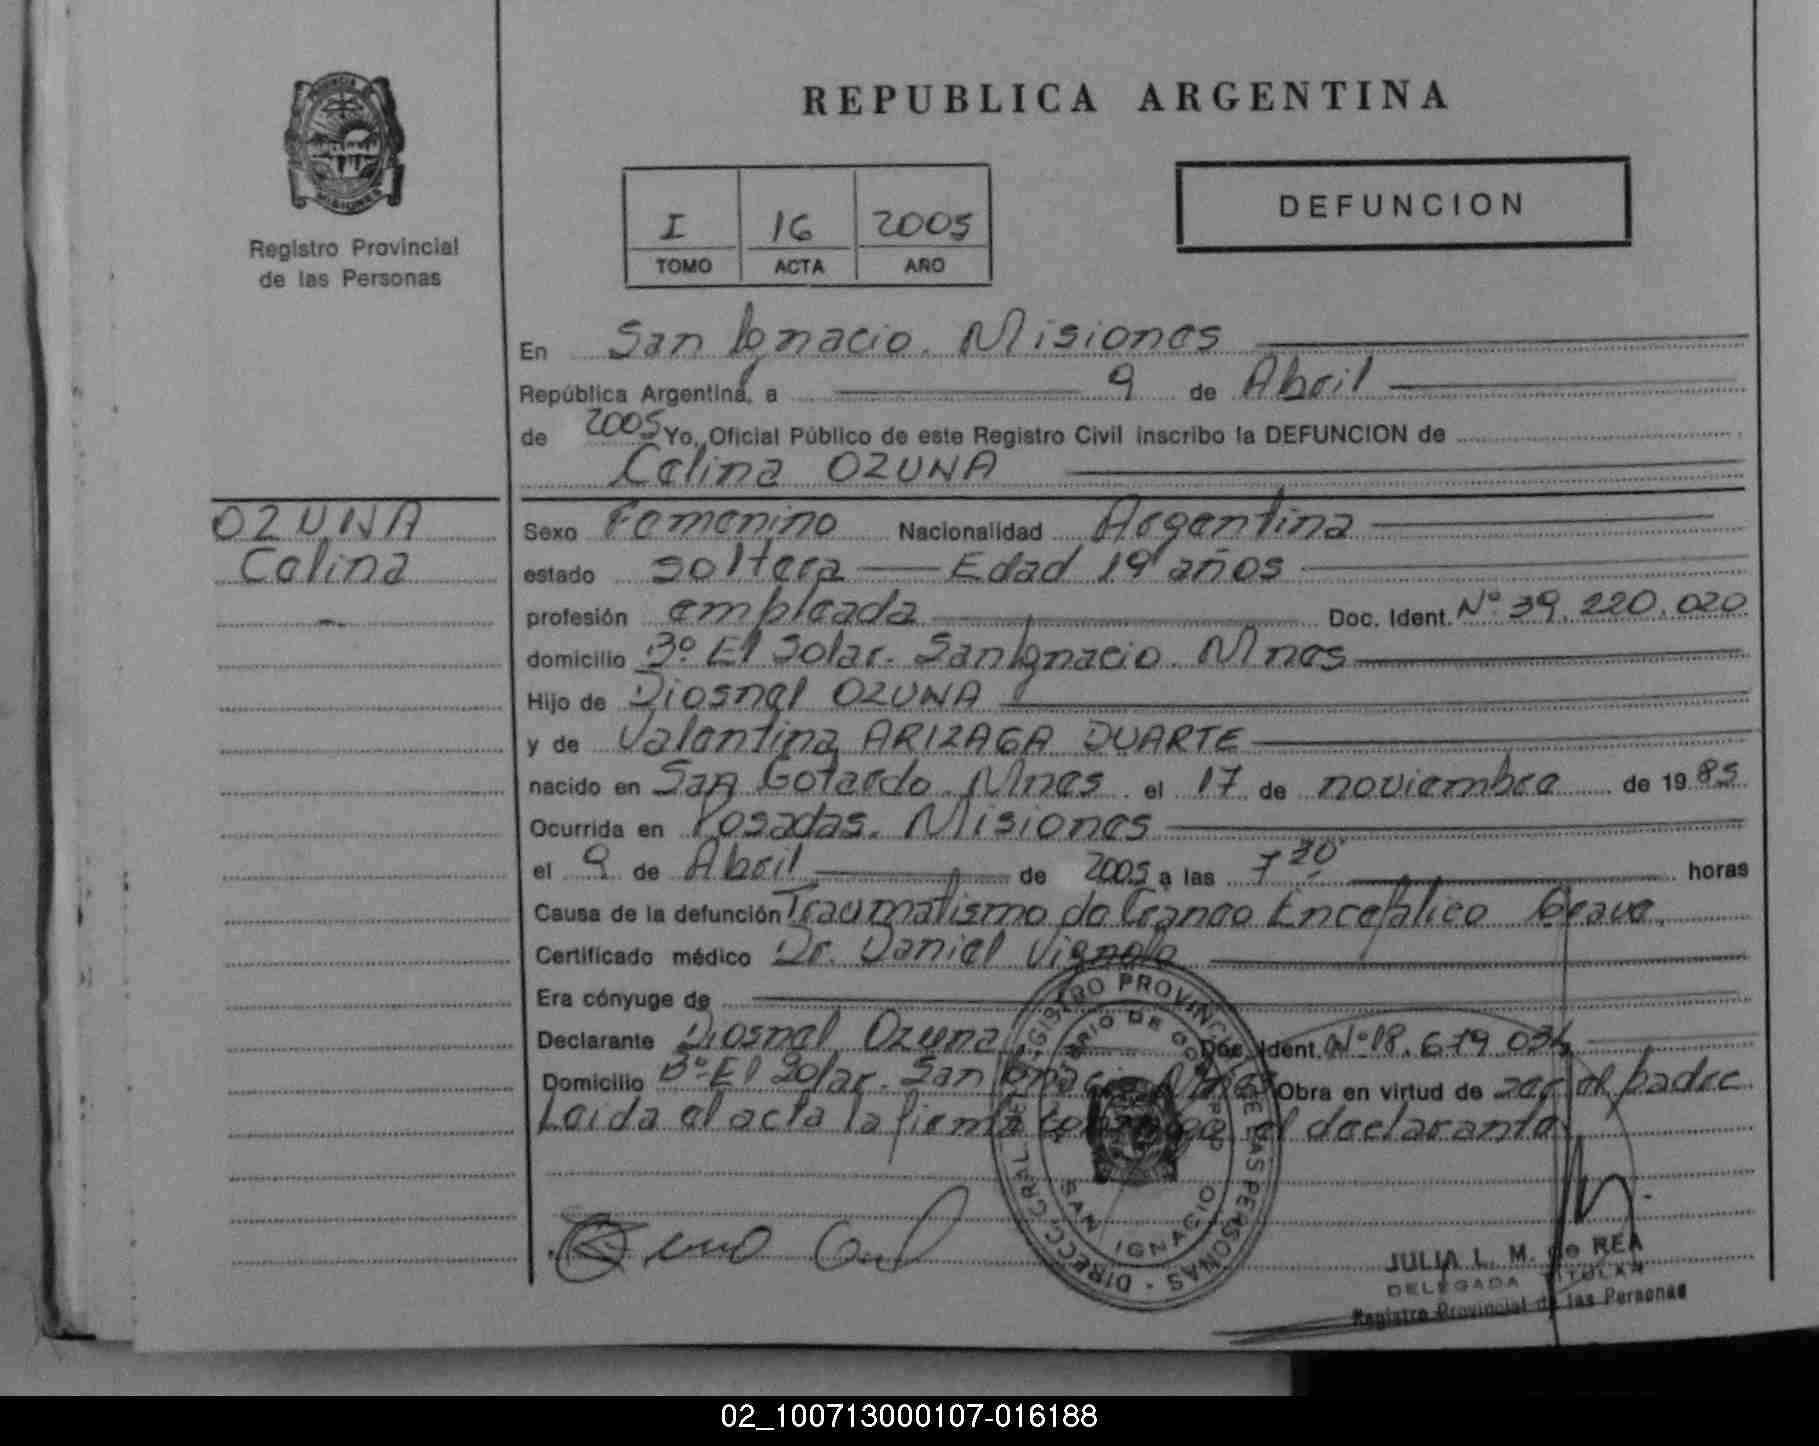 REPUBLICA ARGENTINA
Registro Provincial
de las Personas
I 16 2005
TOMO ACTA AÑO
DEFUNCION
En San Ignacio. Misiones
República Argentina, a 9 de Abril
de 2005 Yo, Oficial Público de este Registro Civil inscribo la DEFUNCION de
Celina OZUNA
OZUNA
Celina
Sexo Femenino Nacionalidad Argentina
estado soltera Edad 19 años
profesión empleada Doc. Ident. Nº 39.220.020
domicilio Bº El Solar. San Ignacio. Mnes
Hijo de Diosnel OZUNA
y de Valentina ARIZAGA DUARTE
nacido en San Gotardo Mnes. el 17 de noviembre de 1985
Ocurrida en Posadas. Misiones
el 9 de Abril de 2005 a las 7 30 horas
Causa de la defunción Traumatismo de Craneo Encefalico Grave.
Certificado médico Dr. Daniel Vignolo
Era cónyuge de
Declarante Diosnel Ozuna Doc. Ident. Nº 18.679.034
Domicilio Bº El Solar. San Ignacio Mnes Obra en virtud de ser el padre
Leida el acta la firma conmigo el declarante.
DIRECC. GRAL. DE REGISTRO PROVINCIAL DE LAS PERSONAS
SAN IGNACIO
JULIA L. M. de REA
DELEGADA TITULAR
Registro Provincial de las Personas
02_100713000107-016188